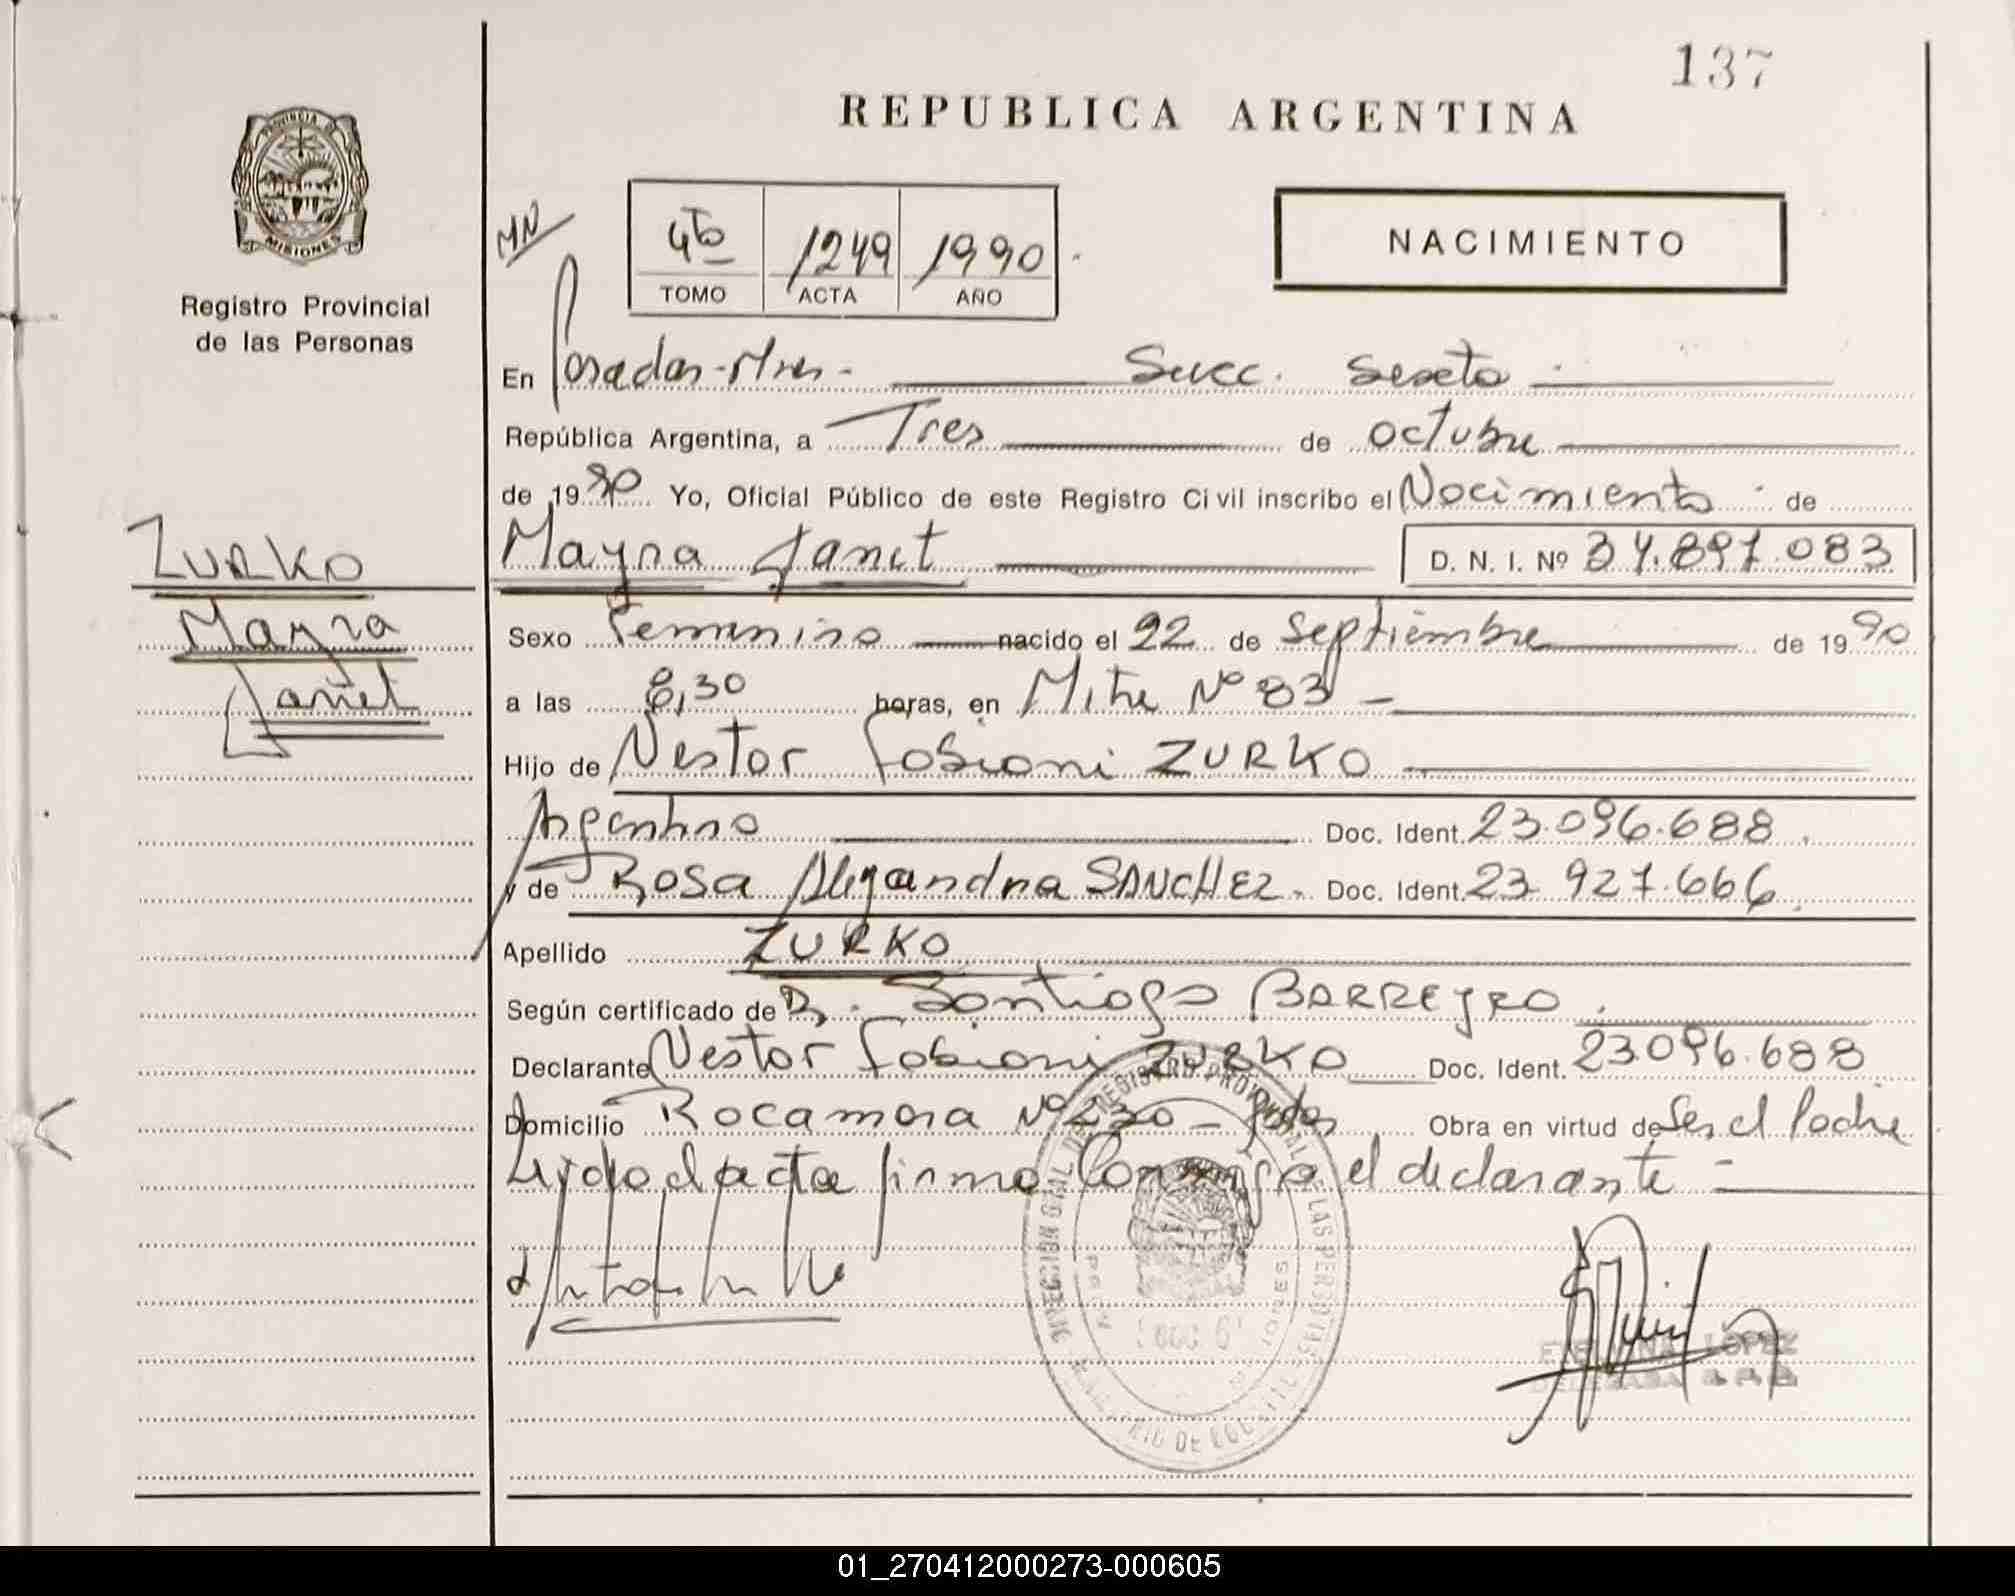 137
REPUBLICA ARGENTINA
PROVINCIA DE
MISIONES
Registro Provincial
de las Personas
4to 1249 1990
TOMO ACTA AÑO
NACIMIENTO
En Posadas-Mnes.- Succ. Sexta
República Argentina, a Tres de octubre
de 1990 Yo, Oficial Público de este Registro Civil inscribo el Nacimiento de
ZURKO
Mayra Janet D. N. I. Nº 34.897.083
Mayra
Sexo Femenino nacido el 22 de Septiembre de 1990
Janet
a las 8,30 horas, en Mitre Nº 83
Hijo de Nestor Fabioni ZURKO
Argentino Doc. Ident. 23.096.688.
y de Rosa Alejandra SANCHEZ. Doc. Ident. 23.927.666.
Apellido ZURKO
Según certificado de Dr. Santiago BARREYRO.
Declarante Nestor Fabioni ZURKO Doc. Ident. 23.096.688
Domicilio Rocamora Nº 230 - Pdas Obra en virtud de Ser el Padre
Leydo el acta firma Conmigo el declarante =
LOPEZ
01_270412000273-000605